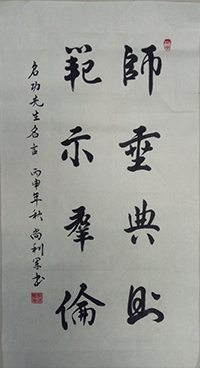 師垂典則
範示羣倫
名功先生名言 丙申年秋 尚利軍书